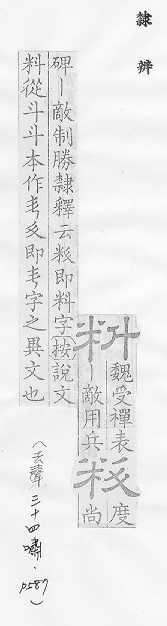 隸辨
魏受禪表
丨敵用兵
度
尚
碑丨敵制勝隸釋云即料字按說文
料從斗斗本作即字之異文也
（去聲 三十四嘯．p587）